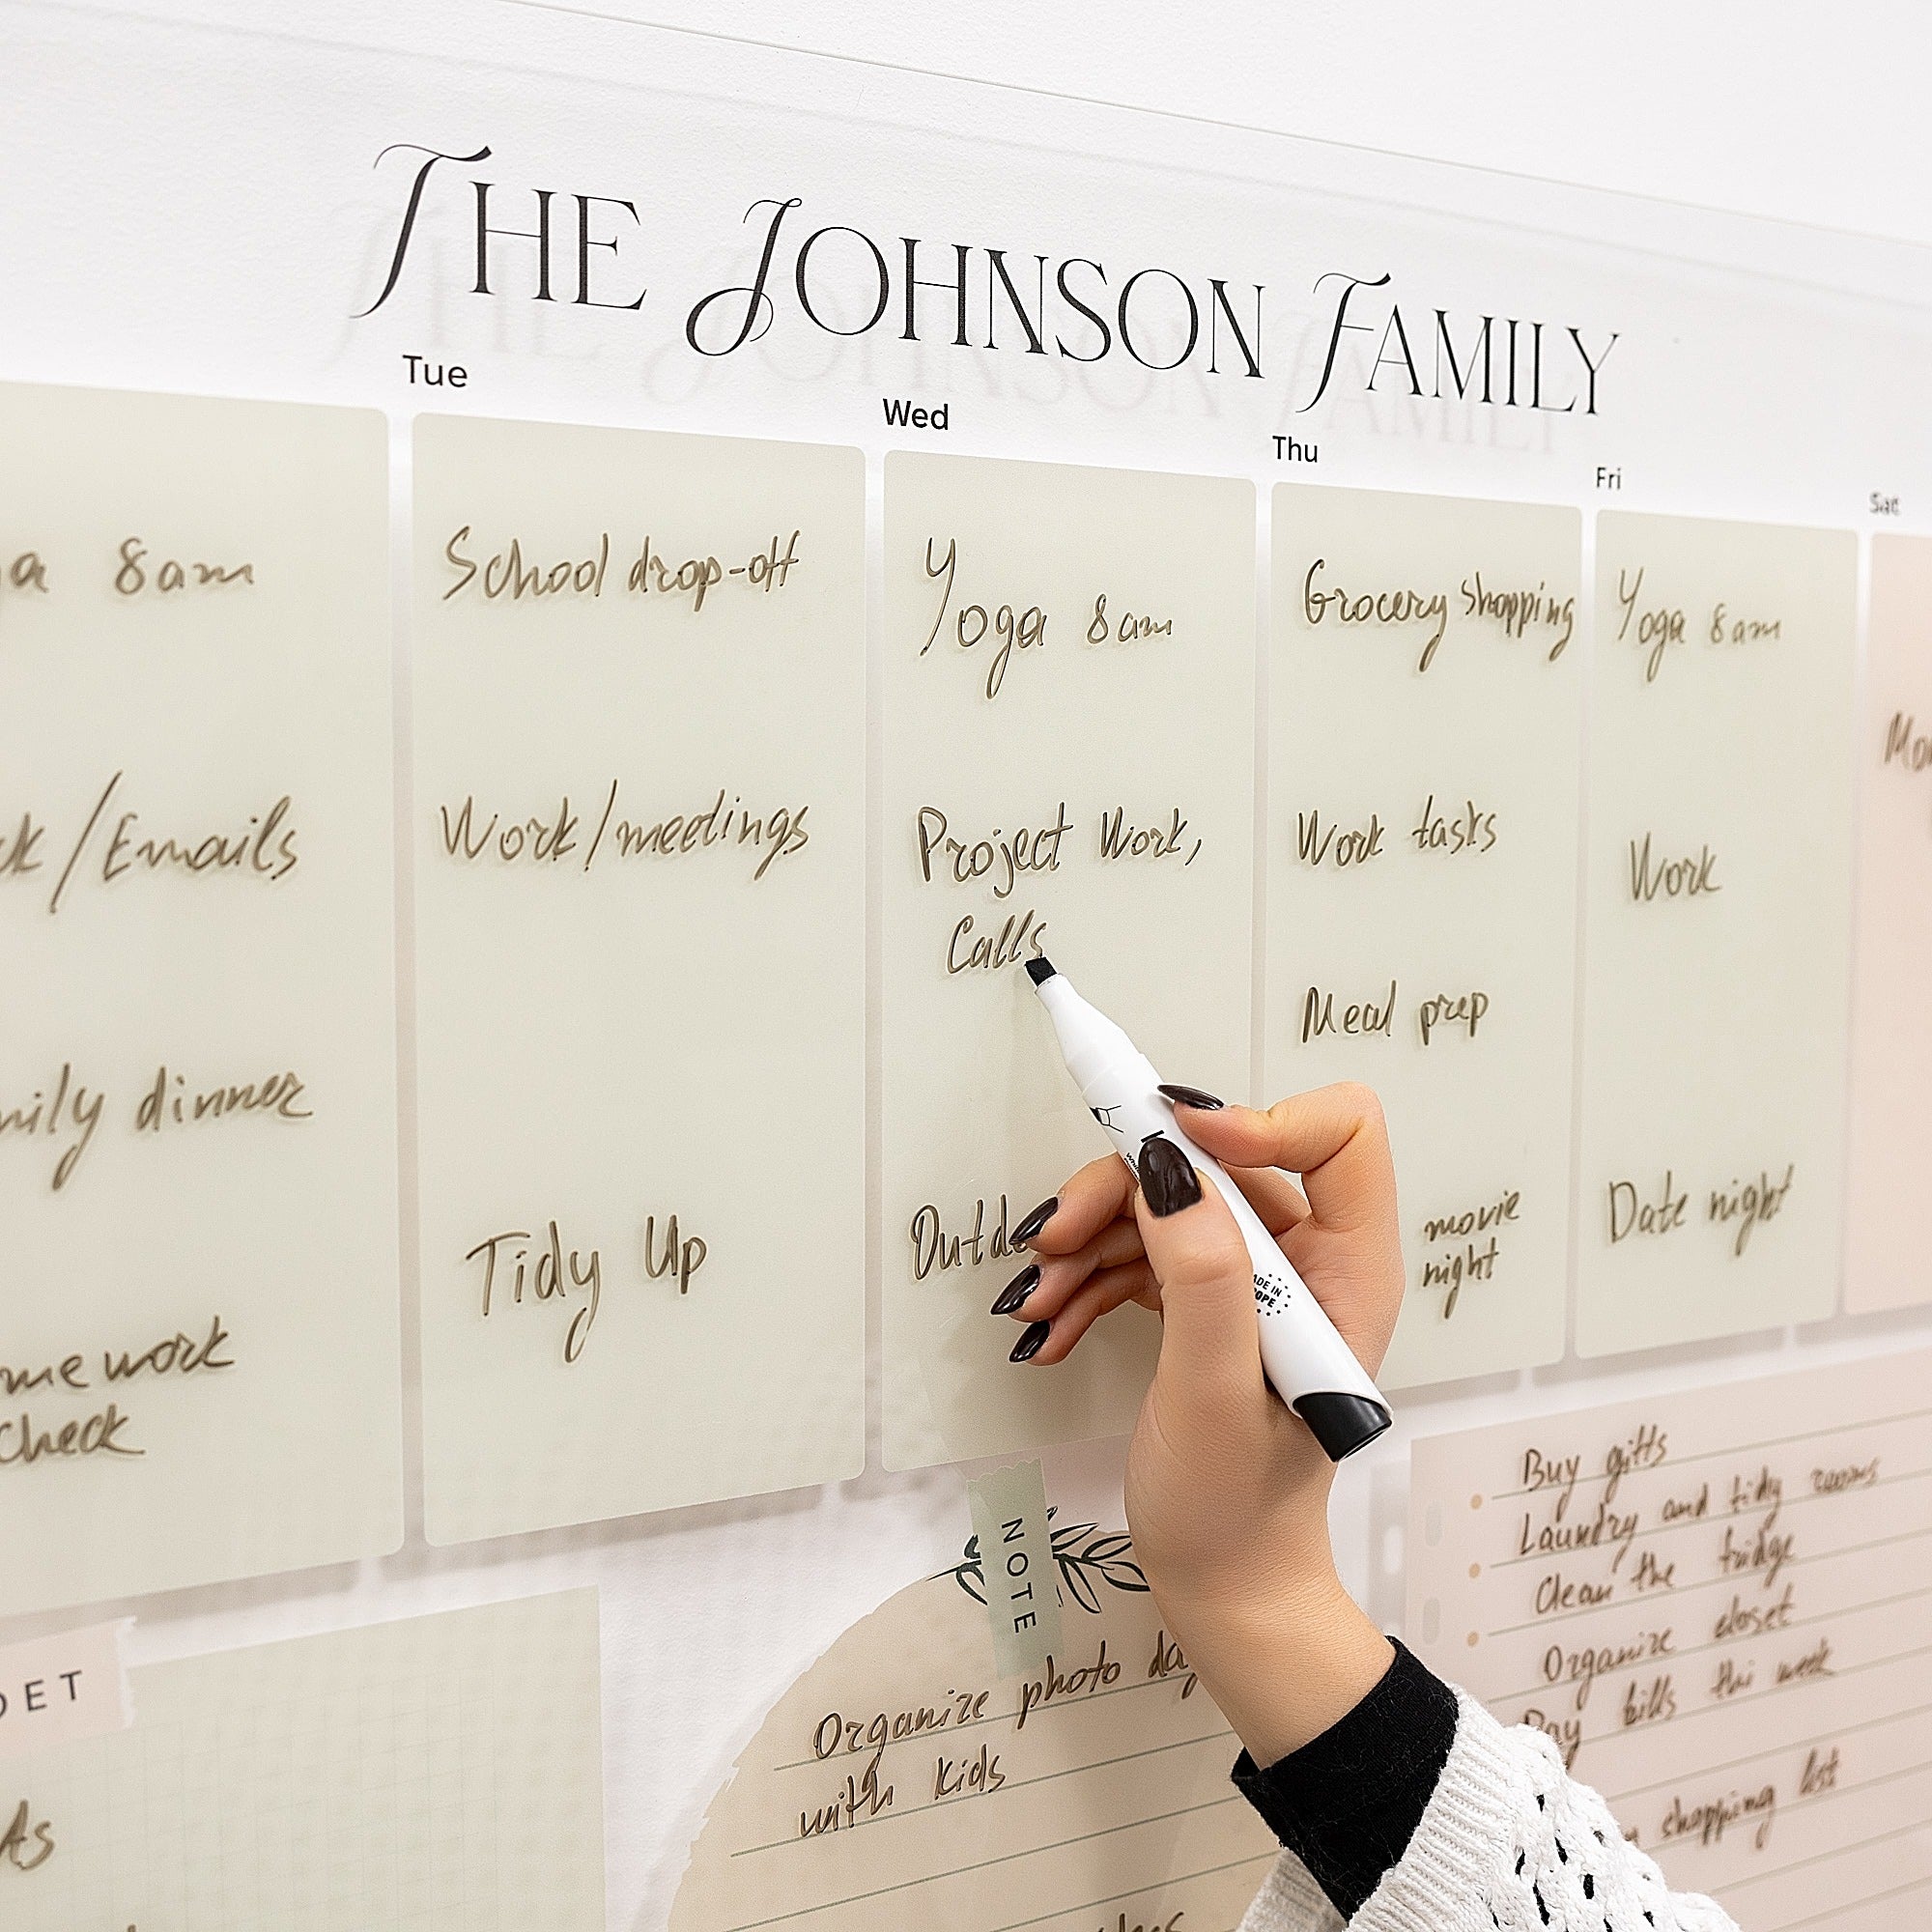 THE JOHNSON FAMILY
Tue
Wed
Thu
Fri
Sat
8am
/Emails
dinner
work
check
School drop-off
Work/meetings
Tidy Up
Yoga 8am
Project Work,
Calls
Grocery shopping
Work tasks
Meal prep
movie
night
Yoga 8am
Work
Date night
NOTE
Organize photo day
with kids
Buy gifts
Laundry and tidy rooms
Clean the fridge
Organize closet
Pay bills this week
shopping list